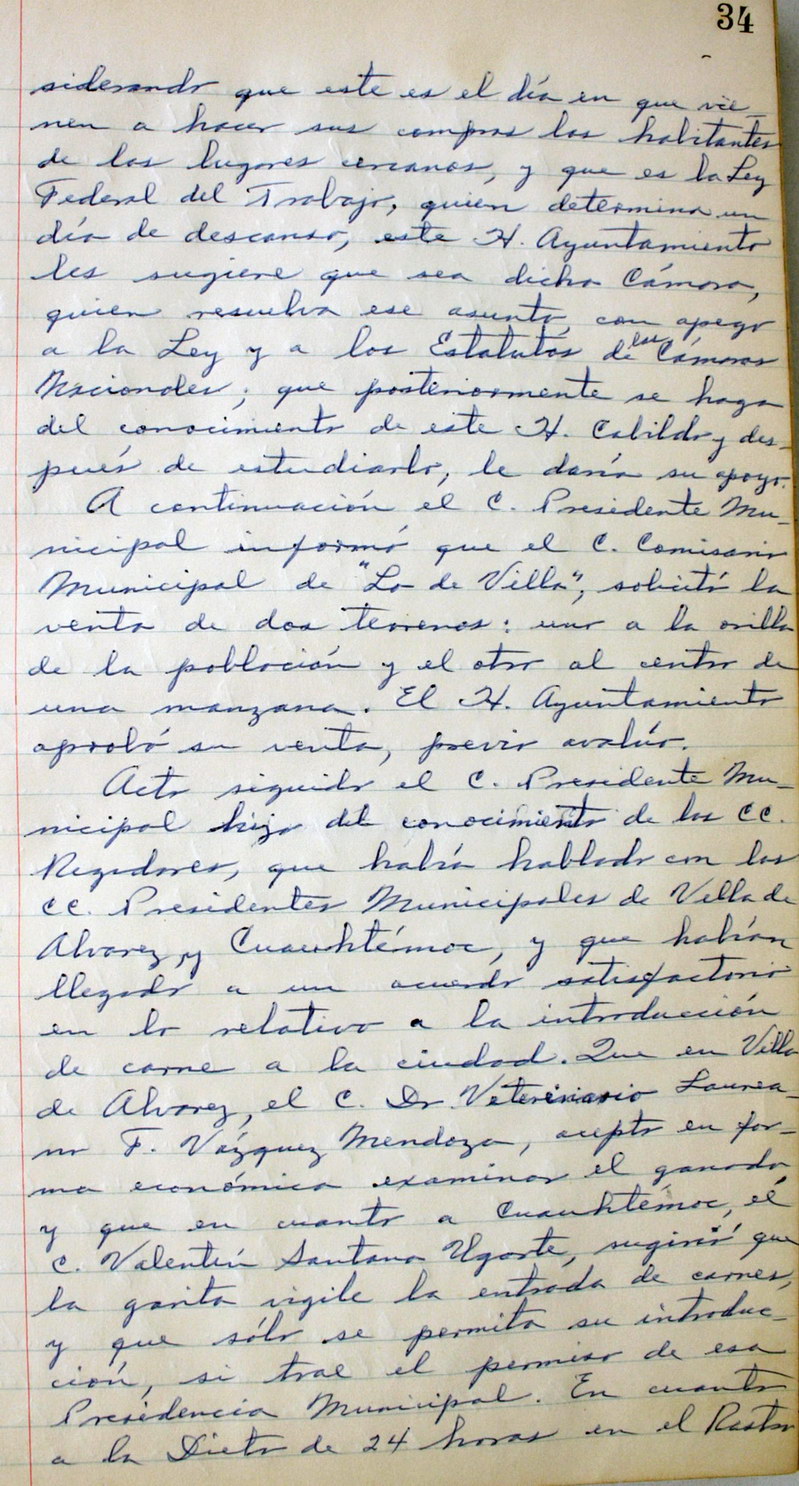 34
siderando que este es el día en que vie-
nen a hacer sus compras los habitantes
de los lugares cercanos, y que es la Ley
Federal del Trabajo, quien determina un
día de descanso, este H. Ayuntamiento
les sugiere que sea dicha Cámara,
quien resuelva ese asunto, con apego
a la Ley y a los Estatutos de las Cámaras
Nacionales; que posteriormente se haga
del conocimiento de este H. Cabildo y des-
pués de estudiarlo, le daría su apoyo.
A continuación el C. Presidente Mu-
nicipal informó que el C. Comisario
Municipal de "Lo de Villa", solicitó la
venta de dos terrenos: uno a la orilla
de la población y el otro al centro de
una manzana. El H. Ayuntamiento
aprobó su venta, previo avalúo.
Acto seguido el C. Presidente Mu-
nicipal hizo del conocimiento de los CC.
Regidores, que había hablado con los
CC. Presidentes Municipales de Villa de
Alvarez, y Cuauhtémoc, y que habían
llegado a un acuerdo satisfactorio
en lo relativo a la introducción
de carne a la ciudad. Que en Villa
de Alvarez, el C. Dr. Veterinario Laurea-
no F. Vázquez Mendoza, acepto en for-
ma económica examinar el ganado,
y que en cuanto a Cuauhtémoc, el
C. Valentín Santana Ugarte, sugirió que
la garita vigile la entrada de carnes,
y que sólo se permita su introduc-
ción, si trae el permiso de esa
Presidencia Municipal. En cuanto
a la Dieta de 24 horas en el Rastro